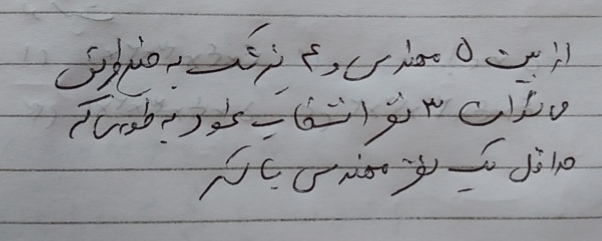 از بین ۵ مهندس و ۴ پزشک به چند طریق
می‌توان ۳ نفر انتخاب نمود به طوری که
حداقل یک نفر مهندس باشد